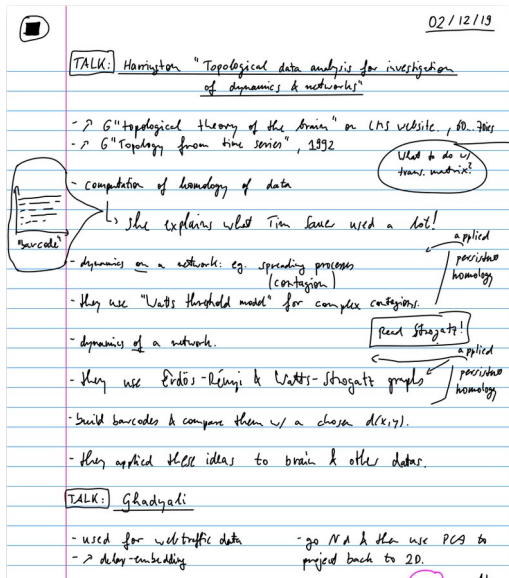 02/12/19
TALK: Harrington "Topological data analysis for investigation
of dynamics & networks"
- ↗ G "topological theory of the brain" on LMS website, 60...70ies
- ↗ G "Topology from time series", 1992
What to do w/
trans. matrix?
- computation of homology of data
↳ she explains what Tim Sauer used a lot!
"Barcode"
- dynamics on a network: eg. spreading processes
(contagion)
applied
persistent
homology
- they use "Watts threshold model" for complex contagions.
Read Strogatz!
- dynamics of a network.
applied
persistent
homology
- they use Erdös-Rényi & Watts-Strogatz graphs
- build barcodes & compare them w/ a chosen d(x,y).
- they applied these ideas to brain & other datas.
TALK: Ghadyali
- used for webtraffic data
- ↗ delay-embedding
- go Nd & then use PCA to
project back to 2D.